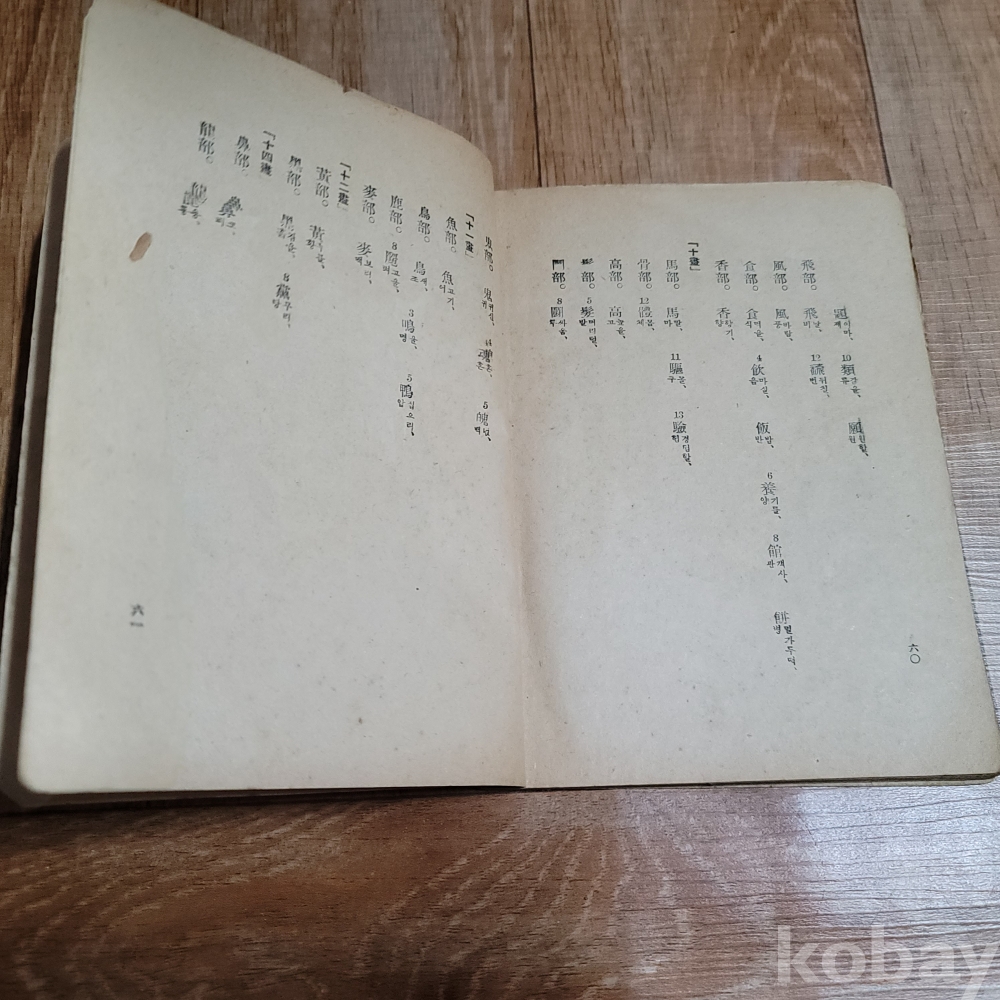 題 이마, 제 10 類 같을, 류 願 원할, 원
飛部。 飛 날, 비 12 飜 뒤칠, 번
風部。 風 바람, 풍
食部。 食 먹을, 식 4 飮 마실, 음 飯 밥, 반 6 養 기를, 양 8 館 객사, 관 餠
香部。 香 향기, 향
「十畫」
馬部。 馬 말, 마 11 驅 몰, 구 13 驗 경험할, 험
骨部。 骨部 13 體 몸, 체
高部。 高 높을, 고
髟部。 5 髮 머리털, 발
鬥部。 8 鬪 싸움, 투
六〇
鬼部。 鬼 귀신, 귀 4 魂 혼, 혼 5 魄 넋, 백
「十一畫」
魚部。 魚 고기, 어
鳥部。 鳥 새, 조 3 鳴 울, 명 5 鴨 집오리, 압
鹿部。 8 麗 고을, 려
麥部。 麥 보리, 맥
「十二畫」
黃部。 黃 누를, 황
黑部。 黑 검을, 흑 8 黨 무리, 당
「十四畫
鼻部。 鼻 코, 비
龍部。 龍 용, 룡
六一
kobay